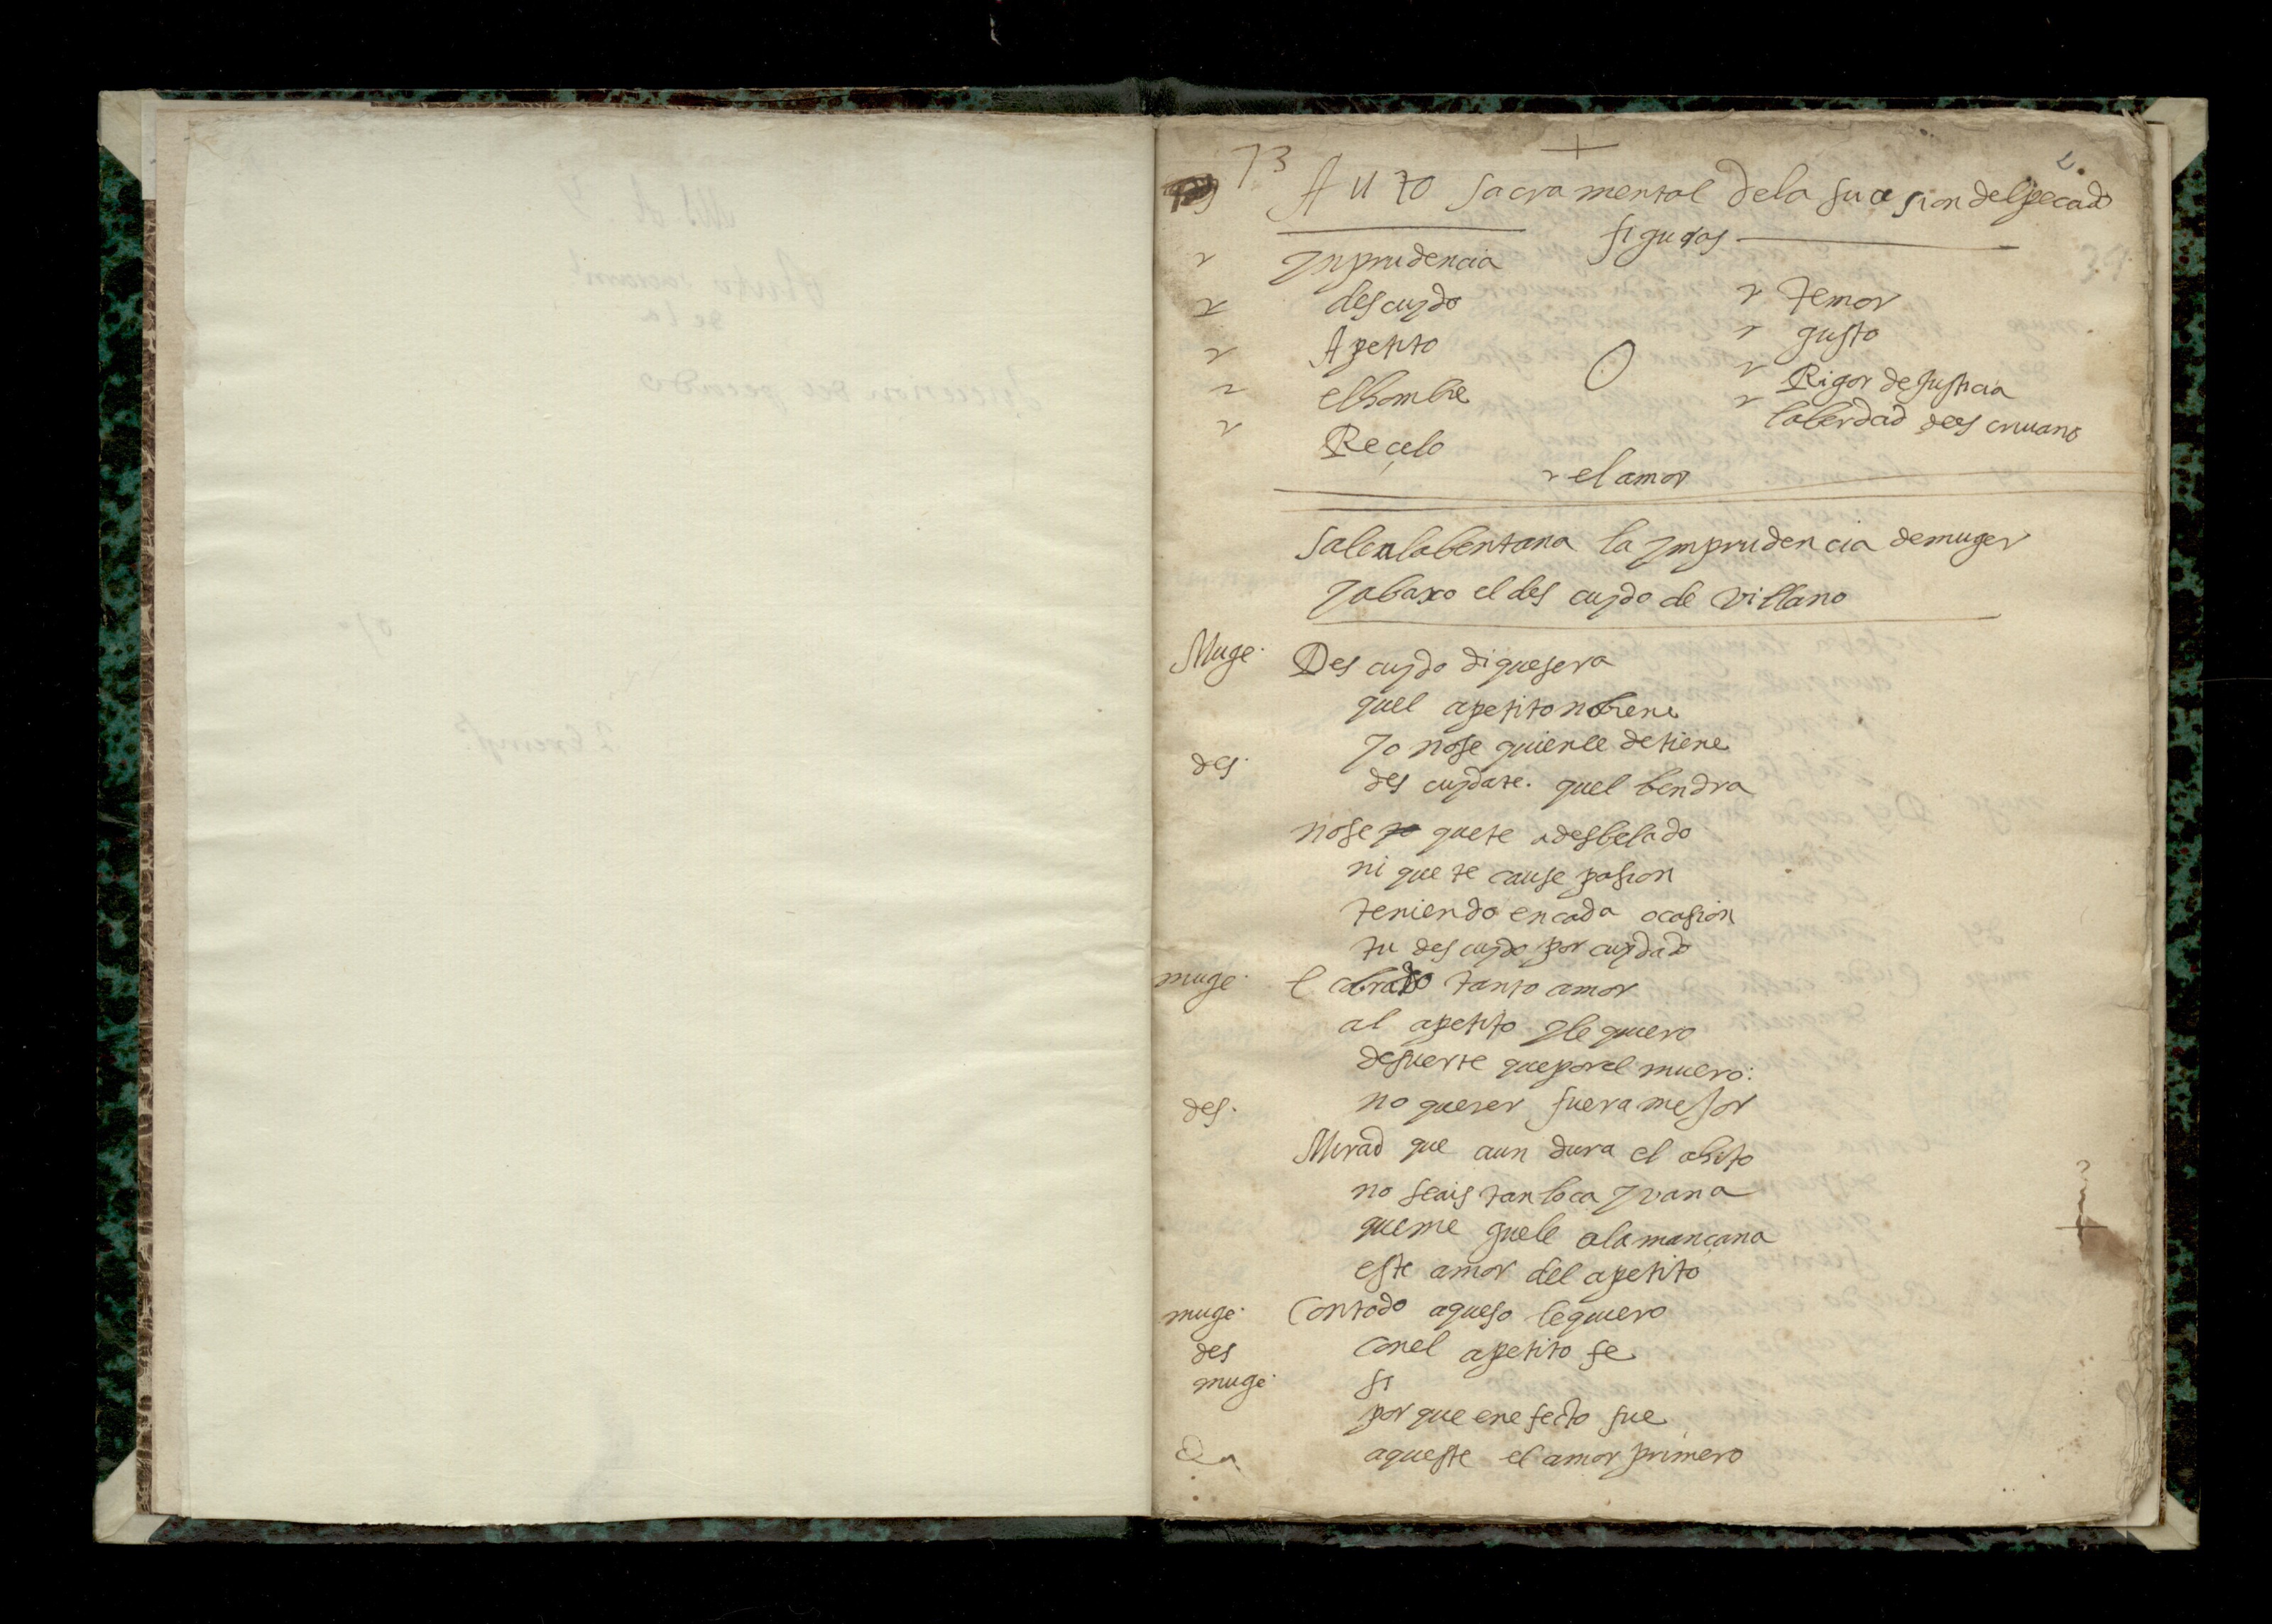 73
Auto sacramental dela sucesion del pecado
figuras
Ynprudencia
descuydo
Apetito
elhombre
Reçelo
temor
gusto
Rigor de Justicia
laberdad de es criuano
el amor
salenlabentana la ymprudencia demuger
yabaxo el des cuydo de villano
Muge. Des cuydo di quesera
quel apetito nobiene
yo nose quienle detiene
des. des cuydate. quel bendra
nose quete adesbelado
ni que te cause pasion
teniendo encada ocasion
tu des cuydo por cuydado
muge. E cobrado tanto amor
al apetito yle quiero
desuerte queporel muero:
des. no querer fuera mejor
Mirad que aun dura el ahito
no seais tan loca y vana
queme guele ala mançana
este amor del apetito
muge. Contodo aqueso lequiero
des conel apetito se
muge. si
por que enefecto fue
aqueste el amor primero